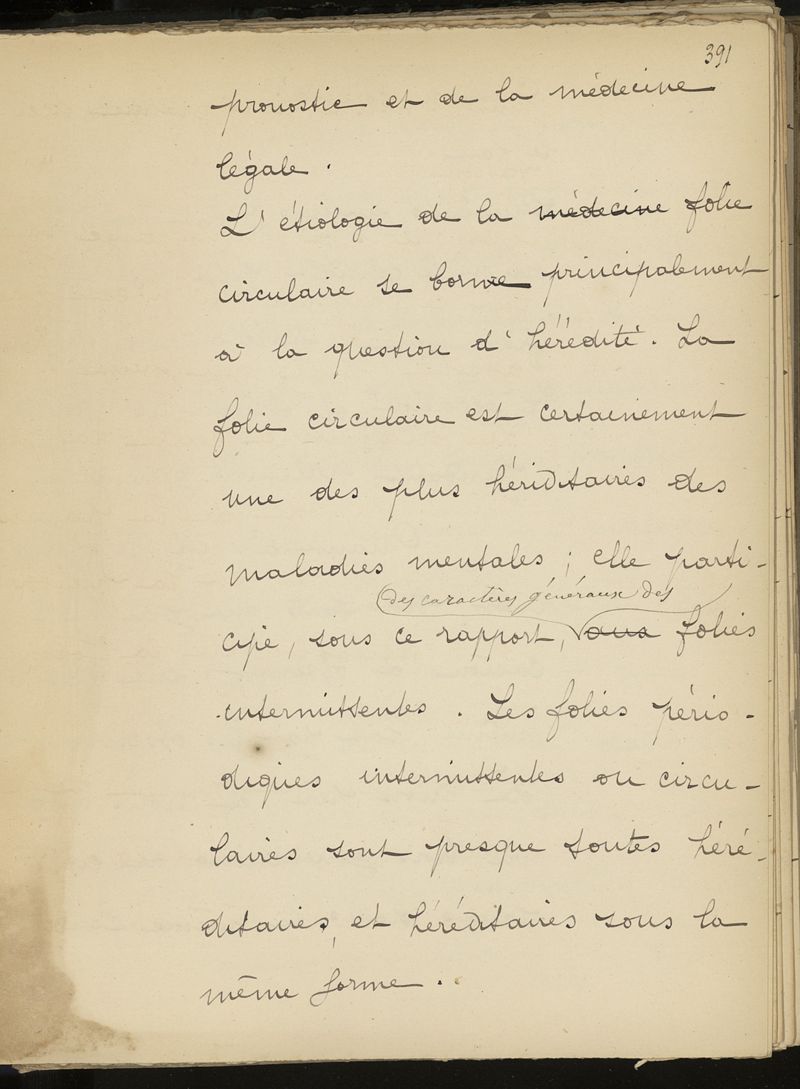 391
pronostic et de la médecine
légale.
L'étiologie de la médecine folie
circulaire se borne principalement
à la question d'hérédité. La
folie circulaire est certainement
une des plus héréditaires des
maladies mentales ; elle parti-
des caractères généraux des
cipe, sous ce rapport, aux folies
intermittentes. Les folies pério-
diques intermittentes ou circu-
laires sont presque toutes héré-
ditaires, et héréditaires sous la
même forme.